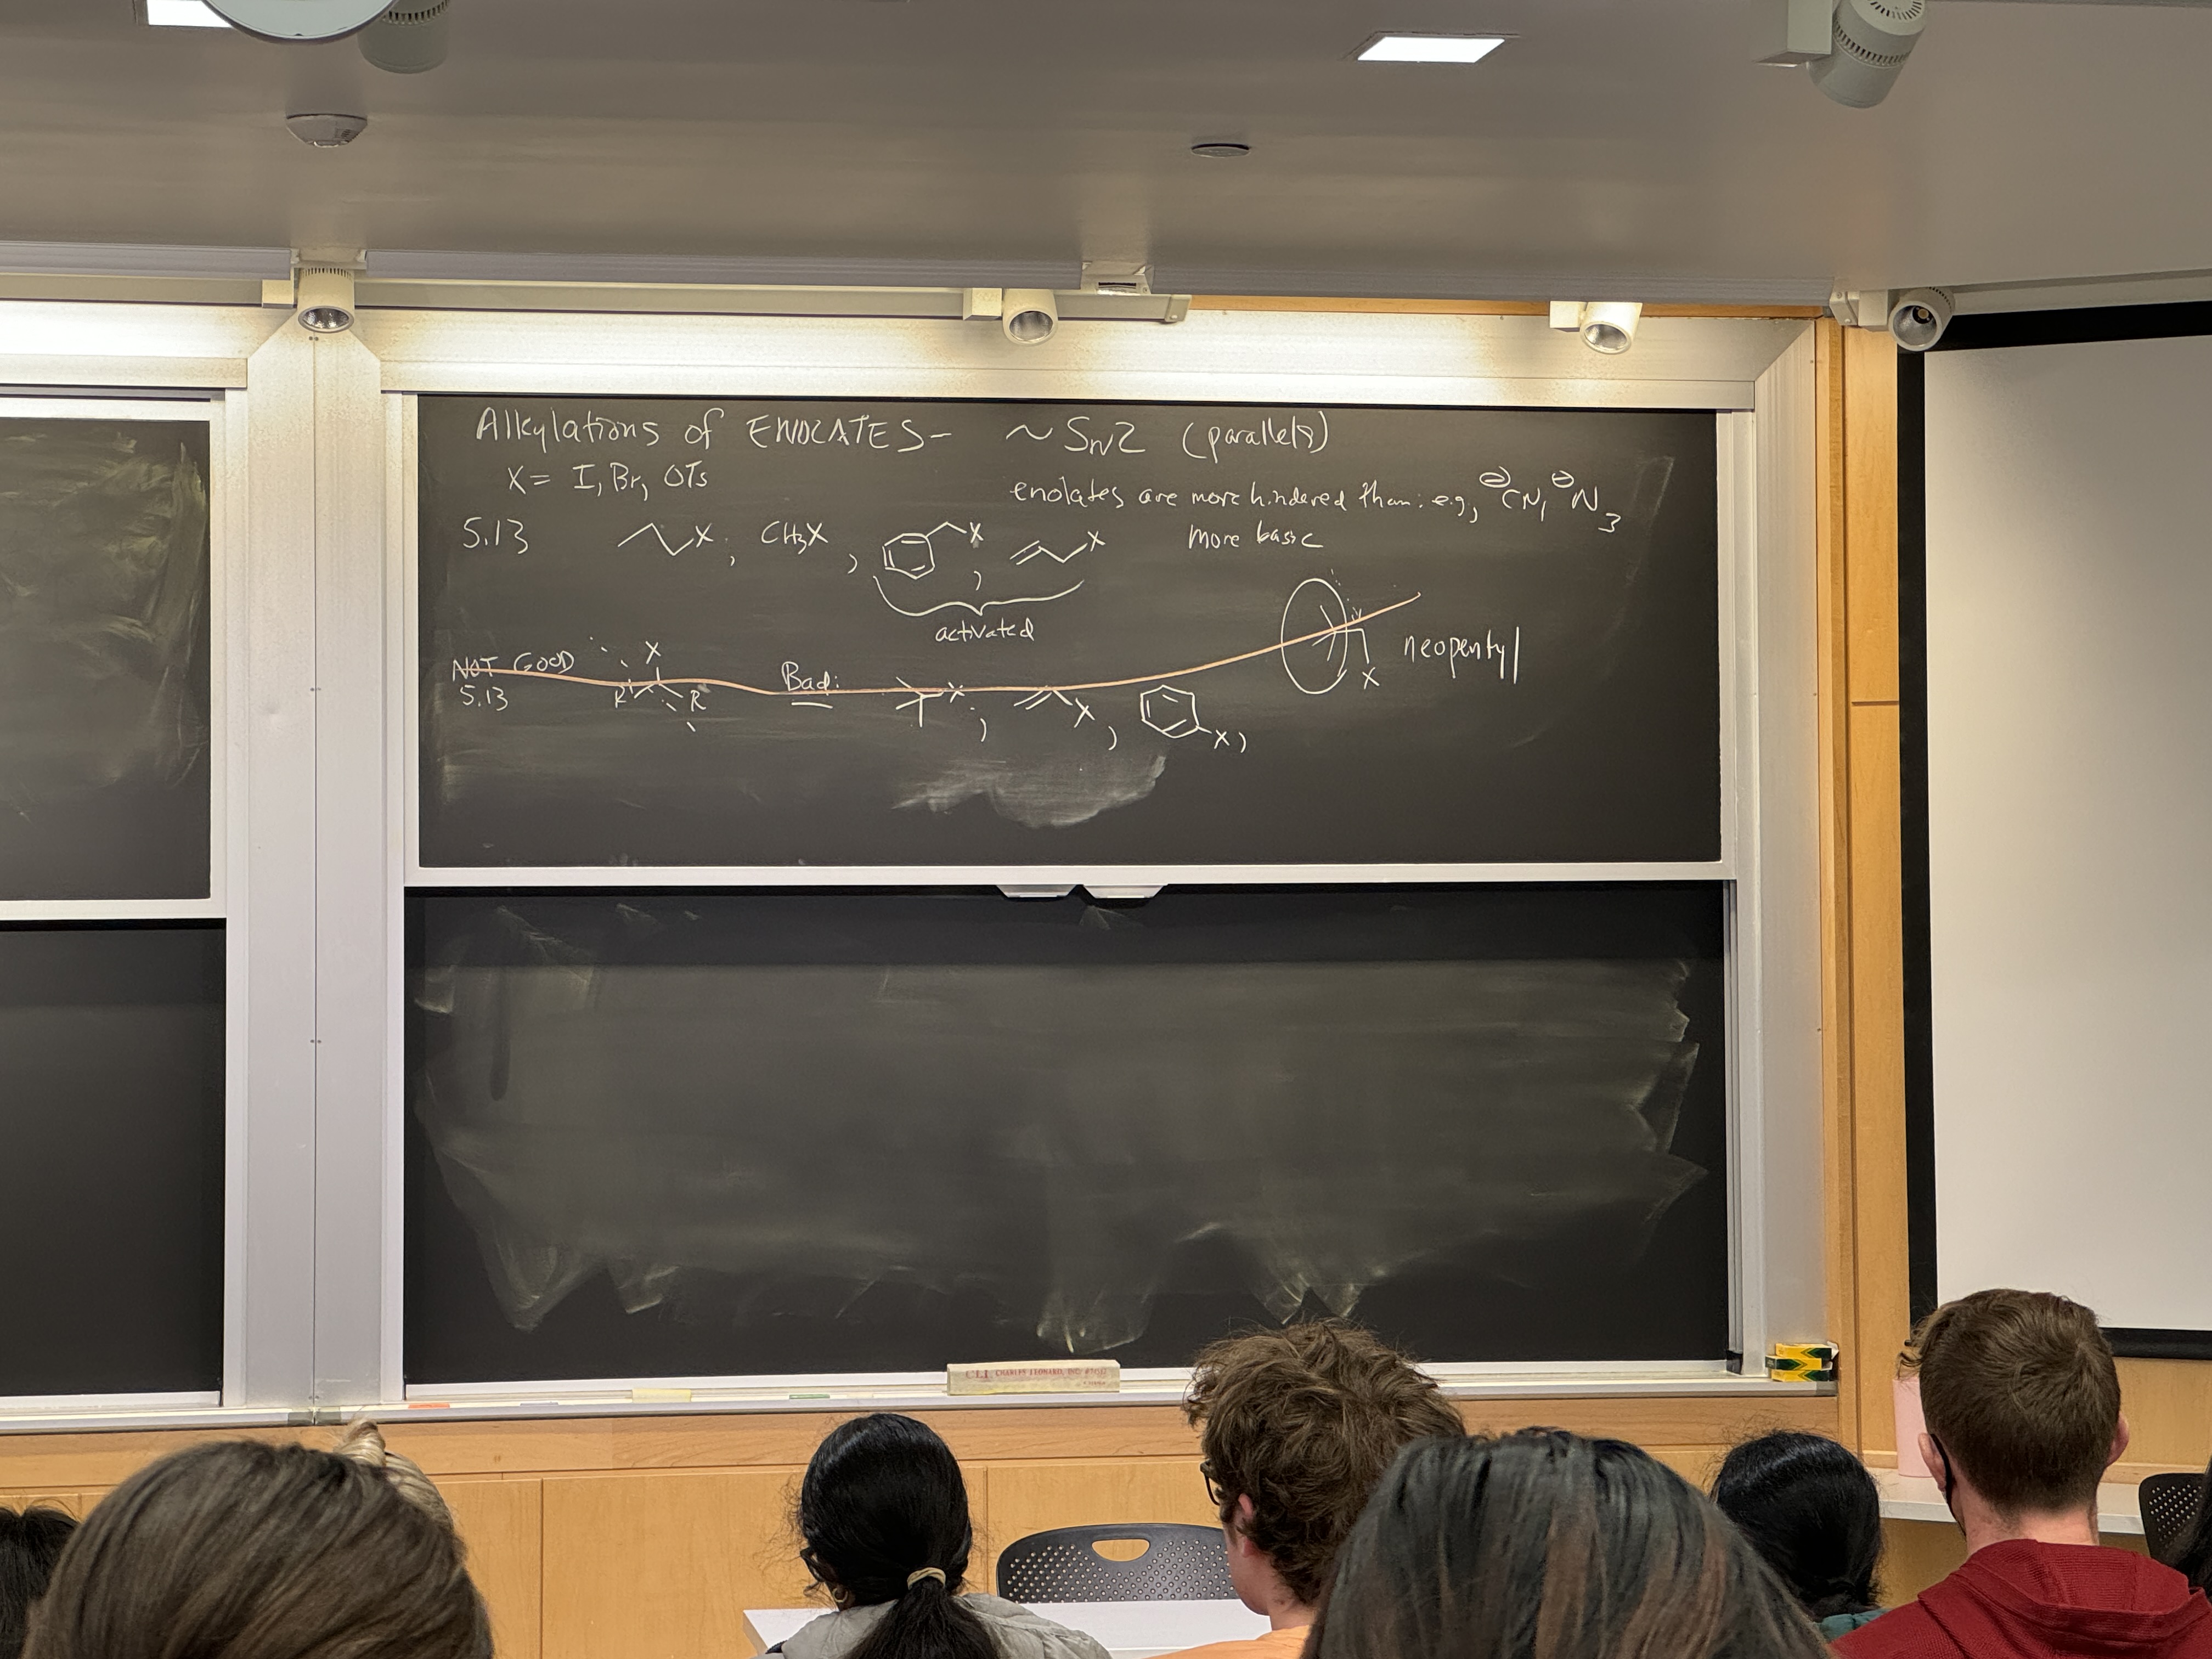 Alkylations of ENOLATES- ~ SN2 (parallels)
X= I, Br, OTs
enolates are more hindered than: e.g., ⊖CN, ⊖N3
more basic
5.13 X, CH3X, X, X
activated
NOT GOOD
5.13
X
R R
Bad:
X, X, X,
X
neopentyl
CLI CHARLES LEONARD, INC.